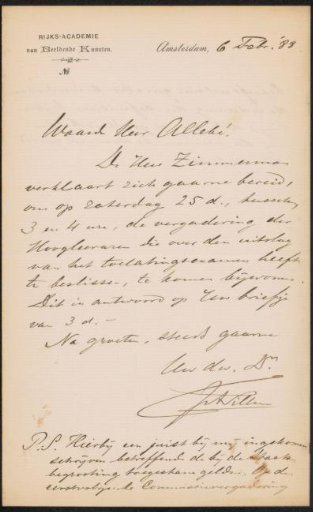 RIJKS-ACADEMIE
van Beeldende Kunsten.
№
Amsterdam, 6 Febr. '88
Waarde Heer Allebé.
De Heer Zimmerman
verklaart zich gaarne bereid,
om op Zaterdag 25 d., tusschen
3 en 4 ure, de vergadering der
Hoogleeraren die over den uitslag
van het toelatingsexamen heeft
te beslissen, te komen bijwonen.
Dit in antwoord op Uw briefje
van 3 d. –
Na groeten, steeds gaarne
Uw dw. Dr
P.S. Hierbij een juist bij mij ingekomen
schrijven betreffende de bij de Staats
begrooting toegestane gelden.
eerstvolgende Commissievergadering